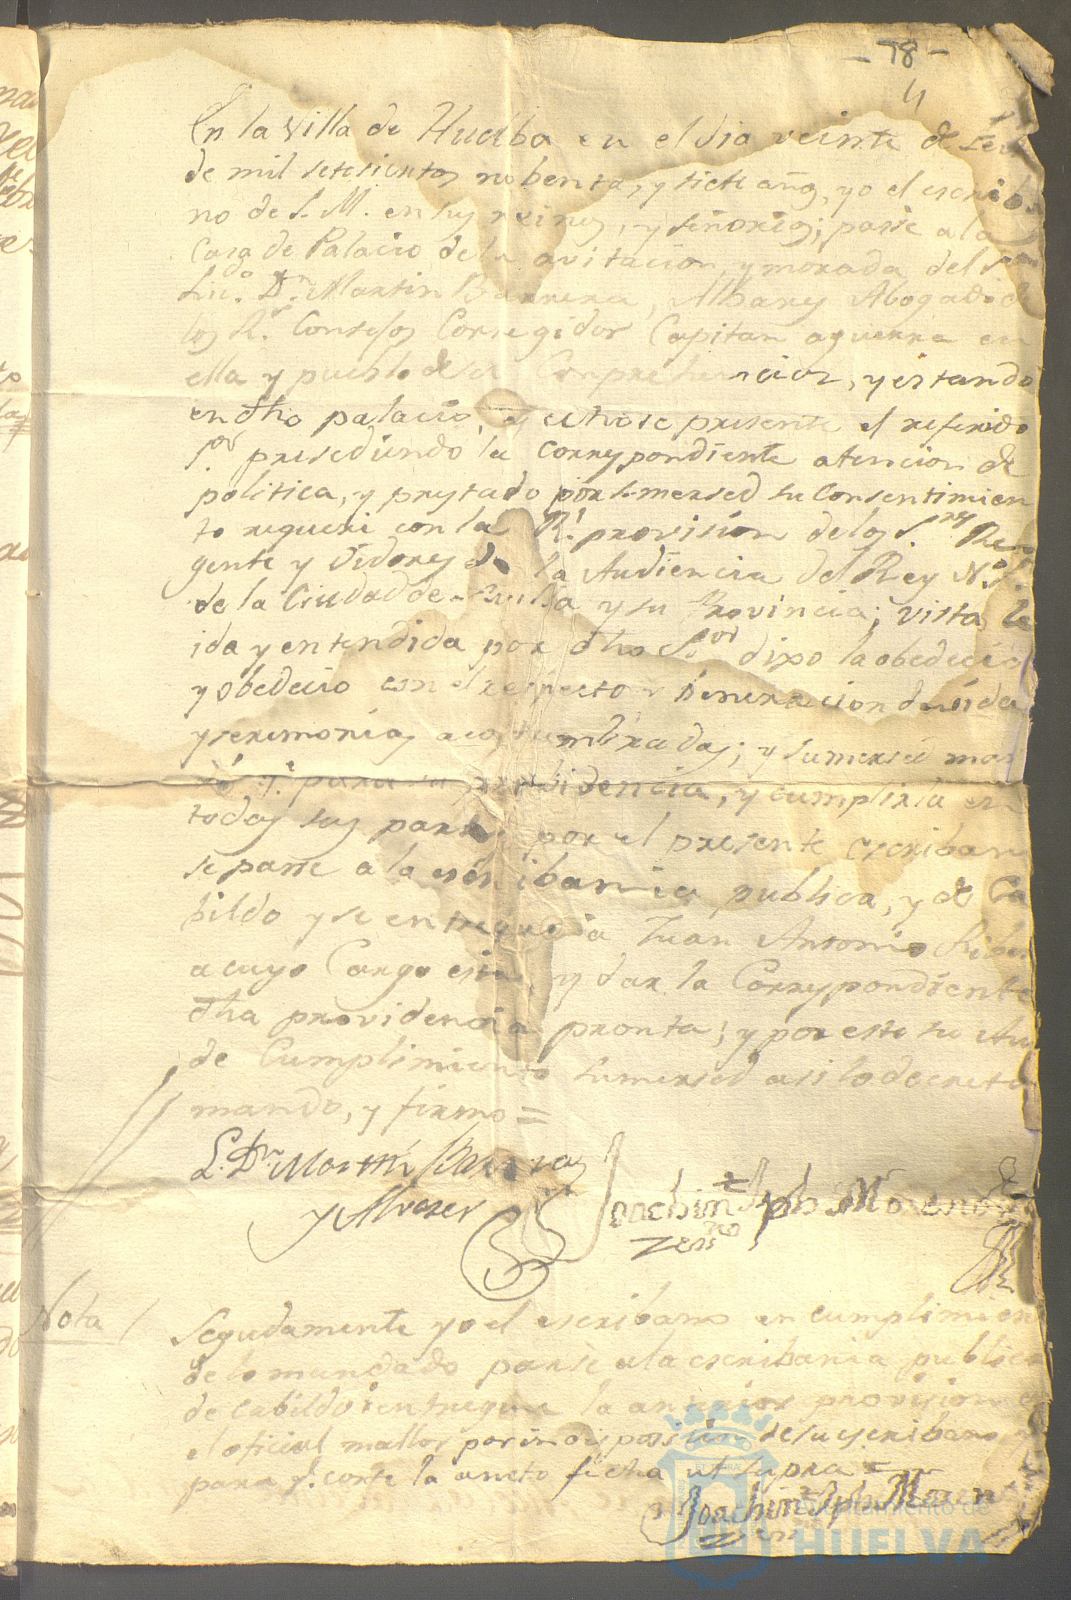 - 78 -
En la villa de Huelba en el dia veinte de
de mil setesientos nobenta, y siete años, yo el escriba
no de S. M. en sus reinos, y señorios; passe a la
Casa de Palacio de la avitacion, y morada del Sor
Licdo. Dn. Martin Barrera, Albares Abogado de
los Rs. Consejos Corregidor Capitan aguerra en
ella y pueblo de su Comprehencion, y estando
en dho palacio, echose presente el referido
Sor. presediendo la correspondiente atencion de
politica, y prestado por su mersed su Consentimien
to requeri con la Rl. provision de los Sres Re
gente y Oidores de la Audiencia del Rey N. S.
de la Ciudad de Sevilla y su Provincia; vista le
ida y entendida por dho Sor dixo la obedecia
y obedecio con el respecto y beneracion devida
y seremonias acostumbradas; y su mersed man
dó qe. para su probidencia, y cumplirla en
todas sus partes por el presente escriban
se passe a la escribania publica, y de Ca
bildo y se entregue a Juan Antonio Ribe
a cuyo Cargo esta, y dar la Correspondiente
dha providencia pronta; y por este su Au
de Cumplimiento su mersed asi lo decreto
mando, y firmo =
L. Dn. Martin Barrera
y Alvares
Joachin Jph Moreno
Nota /
Segudamente yo el escribano en cumplimien
de lo mandado passe a la escribania publica
de cabildo i entregue la anterior provision
el oficial mallor por indisposision de su escribano
para qe. conste la aneto fecha ut supra =
Joachin Jph Moren
Ayuntamiento de
HUELVA